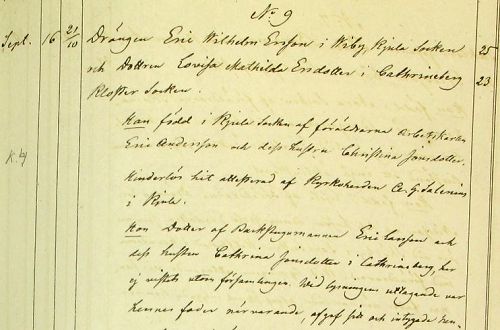 No 9
Sept. 16 21/10 Drängen Eric Wilhelm Ersson i Wiby, Kjula Socken 25
och Dottren Lovisa Mathilda Ersdotter i Cathrineberg 23
Kloster Socken.
Han född i Kjula Socken af föräldrarna Arbetskarlen
Eric Andersson och dess hustru Christina Jonsdotter.
Hinderlös hit attesterad af Kyrkoherden C. G. Salenius
i Kjula.
Hon Dotter af Backstugumannen Eric Larsson och
dess hustru Cathrina Jonsdotter i Cathrineberg, har
ej vistats utom församlingen. Wid lysningens uttagande var
hennes fader närvarande, afgaf sitt och intygade hen